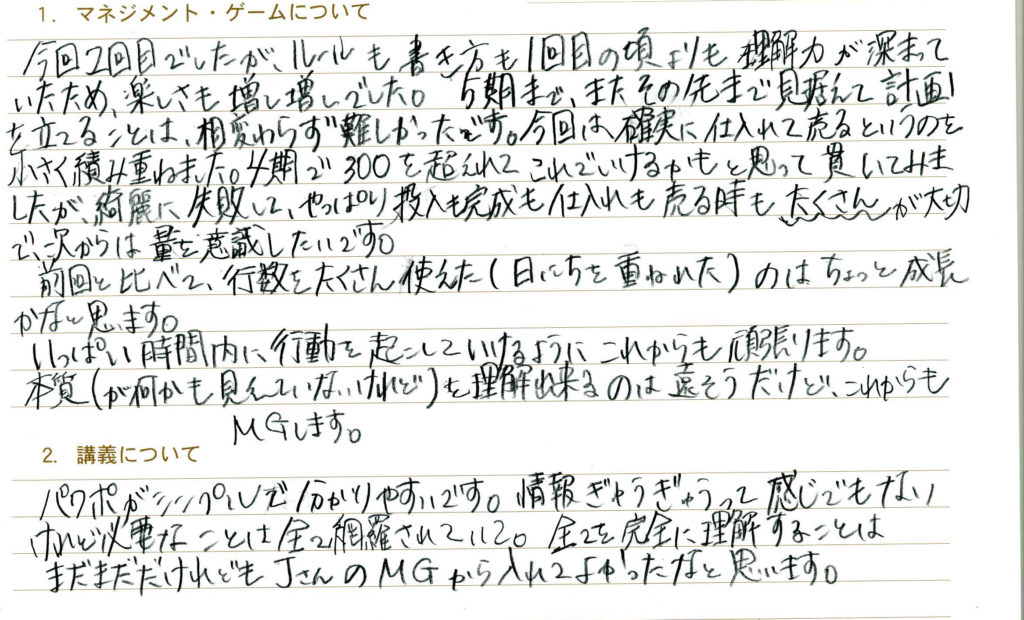 1. マネジメント・ゲームについて
今回2回目でしたが、ルールも書き方も1回目の頃よりも理解力が深まって
いたため、楽しさも増し増しでした。5期まで、またその先まで見据えて計画
を立てることは、相変わらず難しかったです。今回は確実に仕入れて売るというのを
小さく積み重ねました。4期で300を超えれてこれでいけるかもと思って貫いてみま
したが、綺麗に失敗して、やっぱり投入も完成も仕入れも売る時もたくさんが大切
で、次からは量を意識したいです。
前回と比べて、行数をたくさん使えた(日にちを重ねれた)のはちょっと成長
かなと思います。
いっぱい時間内に行動を起こしていけるようにこれからも頑張ります。
本質(が何かも見えていないけれど)を理解出来るのは遠そうだけど、これからも
MGします。
2. 講義について
パワポがシンプルで分かりやすいです。情報ぎゅうぎゅうって感じでもない
けれど必要なことは全て網羅されていて。全てを完全に理解することは
まだまだだけれどもJさんのMGから入れてよかったなと思います。